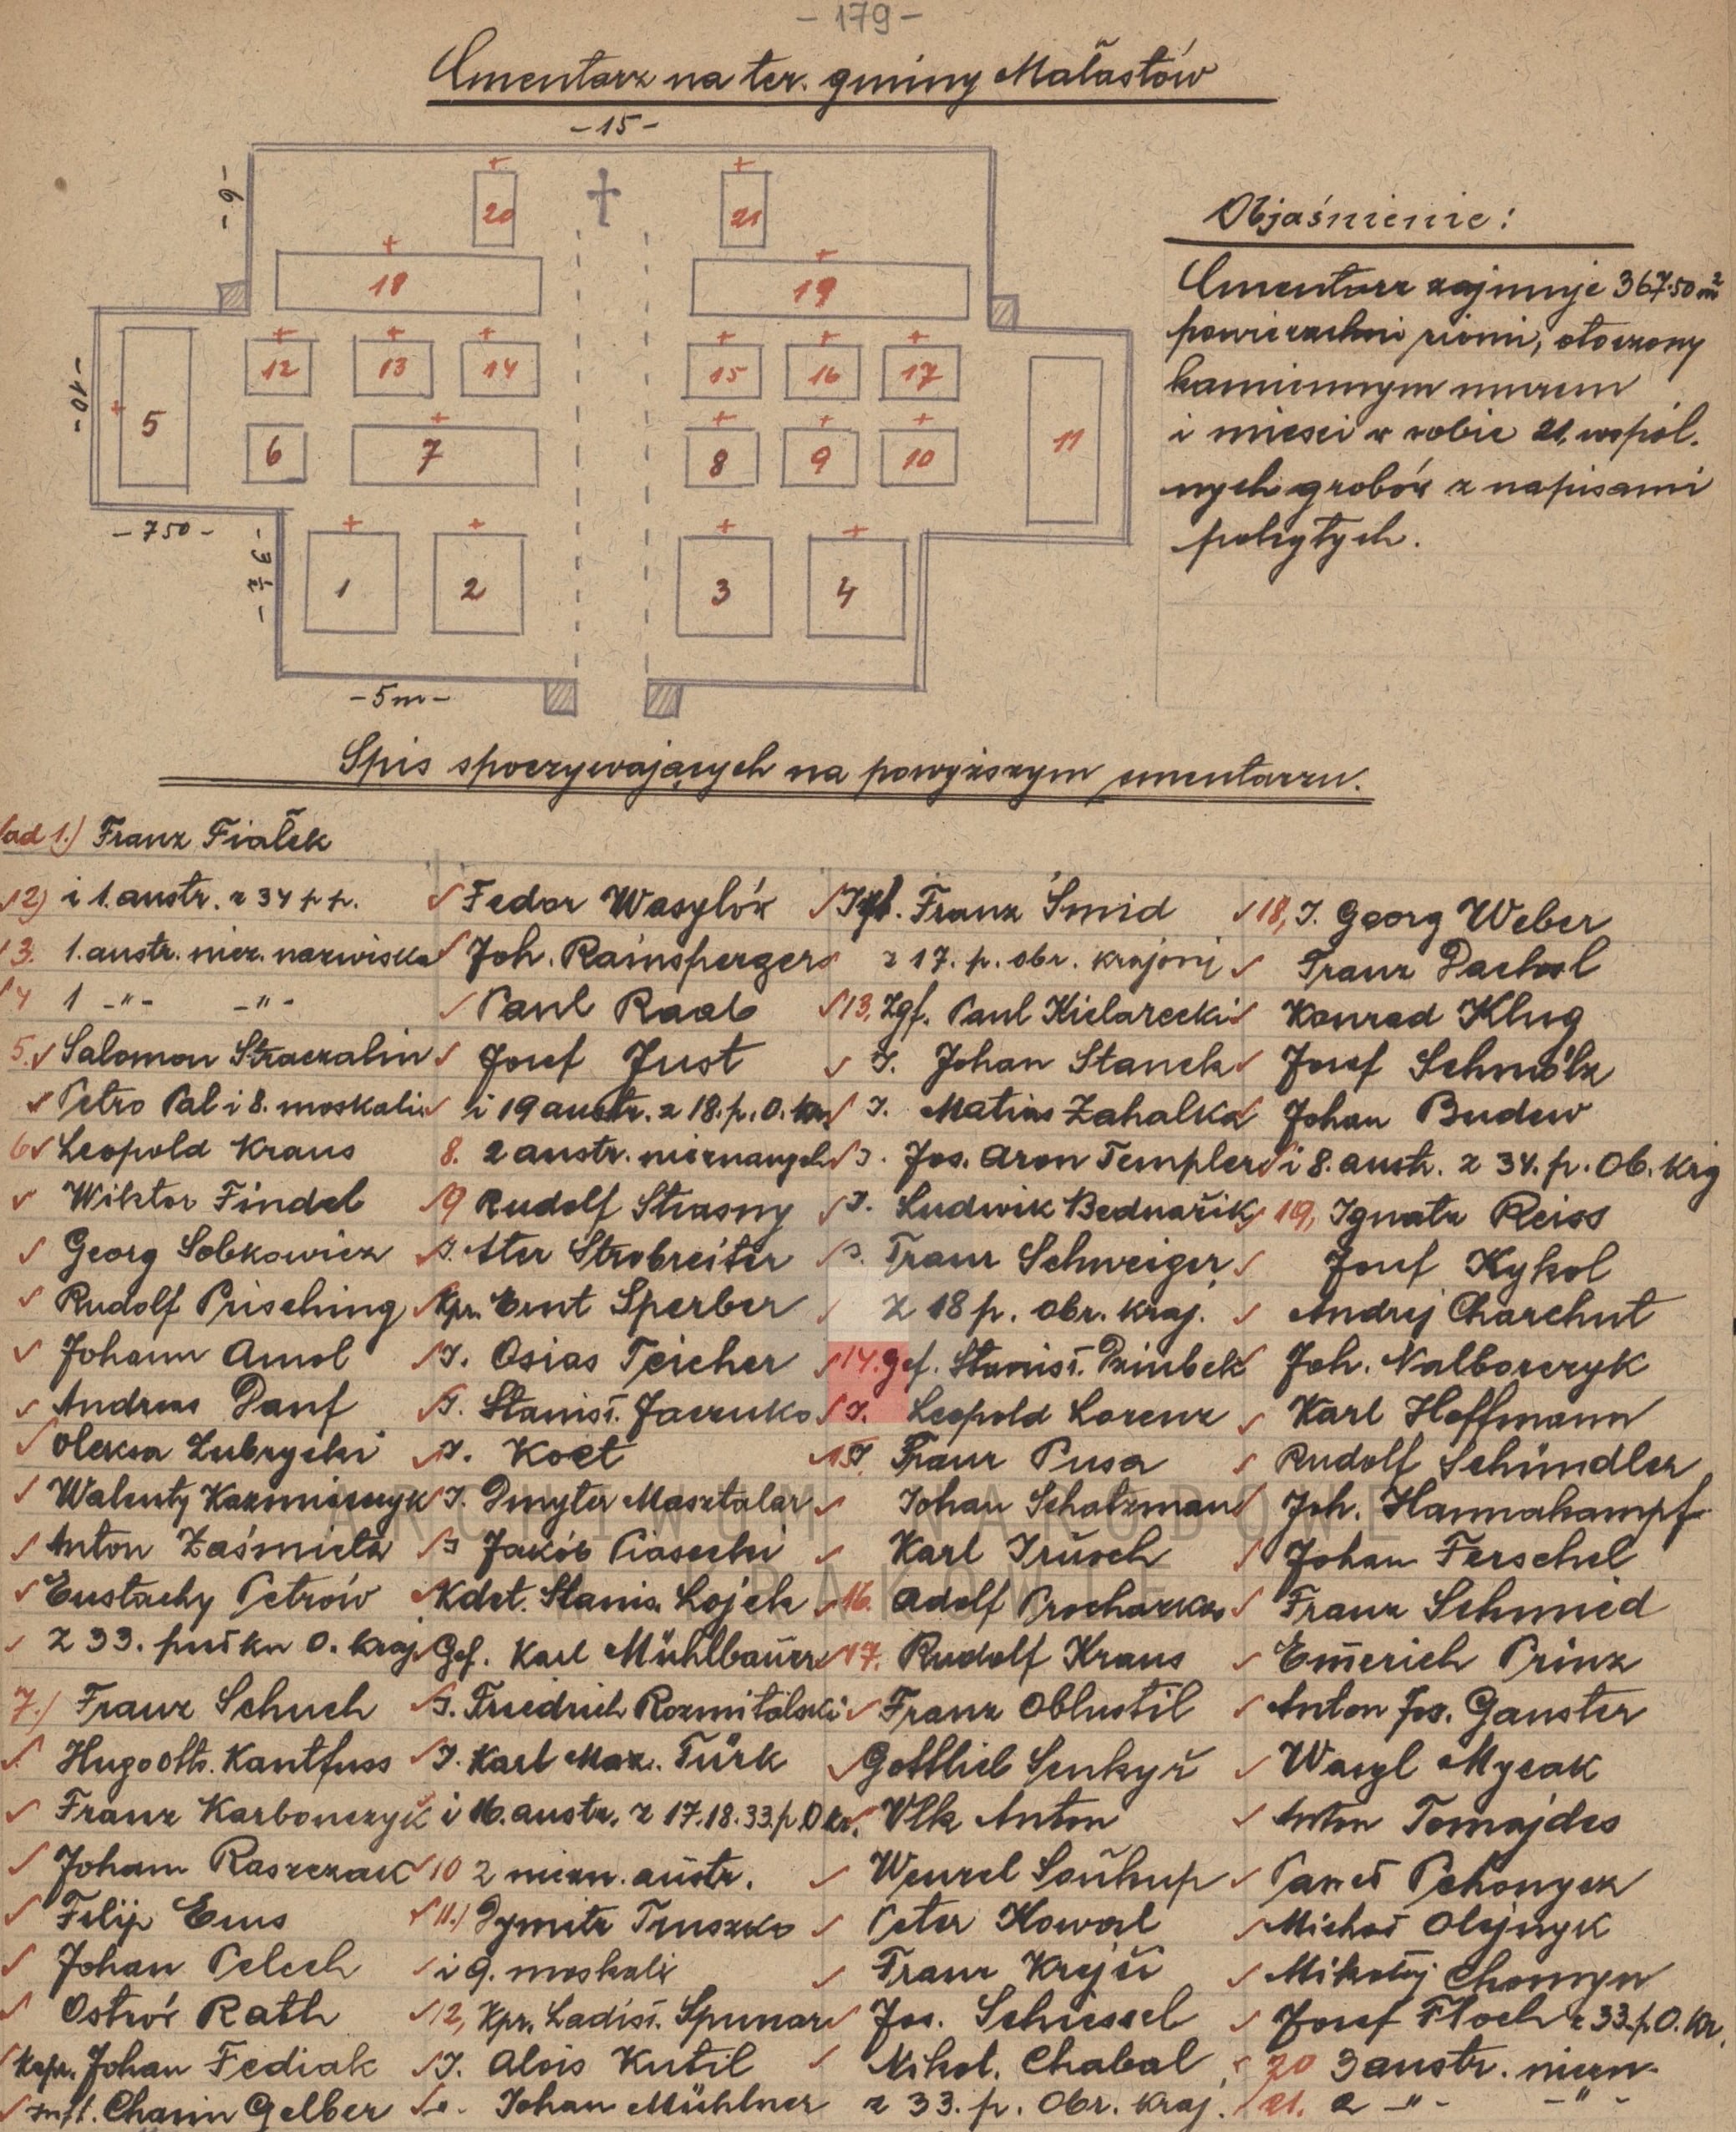 - 179 -
Cmentarz na ter. gminy Małastów
- 15 -
- 9 -
20
21
18
19
12
13
14
15
16
17
- 10 -
5
6
7
8
9
10
11
- 750 -
- 3 ½ -
1
2
3
4
- 5 m -
Objaśnienie:
Cmentarz zajmuje 367.50 m²
powierzchni ziemi, otoczony
kamiennym murem
i mieści w sobie 21. wspól.
nych grobów z napisami
poległych.
Spis spoczywających na powyższym cmentarzu.
ad 1.) Franz Fiałek
2) i 1. austr. z 34 p p.
3. 1. austr. niez. nazwiska
4 1 -"- -"-
5. Salomon
Petro Pal i 8. moskali
6 Leopold Kraus
Wiktor Findel
Georg Sobkowicz
Rudolf Prisching
Johann Amol
Andreas Panf
Oleksa Zubrycki
Walenty Kazmierczyk
Anton
Eustachy Petrów
z 33. pułku O. kraj.
7.) Franz Schuch
Hugo Otto. Kantfuss
Franz Karbonczyk
Johann Raszczak
Filip Ems
Johan Pelech
Ostrów Rath
Kapr. Johan Fediak
Inft. Chaim Gelber
Fedor Wasylów
Joh. Rainsperger
Paul Raab
Josef Just
i 19 austr. z 18. p. O. kr.
8. 2 austr. nieznanych
9 Rudolf Strasny
I. Ater Strobreiter
Kpr. Ernt Sperber
I. Osias Teicher
I. Stanisł. Jaczuko
I. Koet
I. Dmyter Masztalar
I Jakób Piasecki
Kdet. Stanis. Łojek
Gef. Karl Mühlbauer
I. Friedrich
I. Karl Max. Türk
i 16. austr. z 17.18.33. p. O kr.
10 2 niezn. austr.
11.) Dymitr Truszko
i 9. moskali
12, Kpr. Ladisł. Spunar
I. Alois Kutil
Johan Mühlner
Franz Šmid
z 17. p. obr. krajowej
13, Zgf. Paul Kielarecki
I. Johan Stanek
I. Matias Zahalka
I. Jos. Aron Templer
I. Ludwik Bednařik
I. Franz Schweiger
z 18 p. obr. kraj.
14. Gef. Stanisł. Dziubek
I. Leopold Lorenz
15 I. Franz Pusa
Johan Schatzman
Karl
16. Adolf Prochazka
17. Rudolf Kraus
Franz Oblustil
Gottlieb Senkyř
Vlk Anton
Wenzel Soukup
Peter Kowal
Franz Krejči
Jos. Schiessel
Nikol. Chabal
z 33. p. Obr. kraj.
18, I. Georg Weber
Franz
Konrad Klug
Josef Schmölz
Johan Budew
i 8. austr. z 34. p. Ob. krj
19, Ignatz Reiss
Josef Kykol
Andrej Charchut
Joh. Nalborczyk
Karl Hoffmann
Rudolf Schindler
Joh. Hannakampf
Johan Ferschel
Franz Schmied
Emerich Prinz
Anton Jos. Gauster
Wasyl Mycak
Anton Tomajdes
Paweł
Michał Olejnyk
Mikołaj Chomyn
Josef Floch z 33. p. O. Kr.
20 3 austr. niezn.
21. 2 -"- -"-
ARCHIWUM NARODOWE
W KRAKOWIE